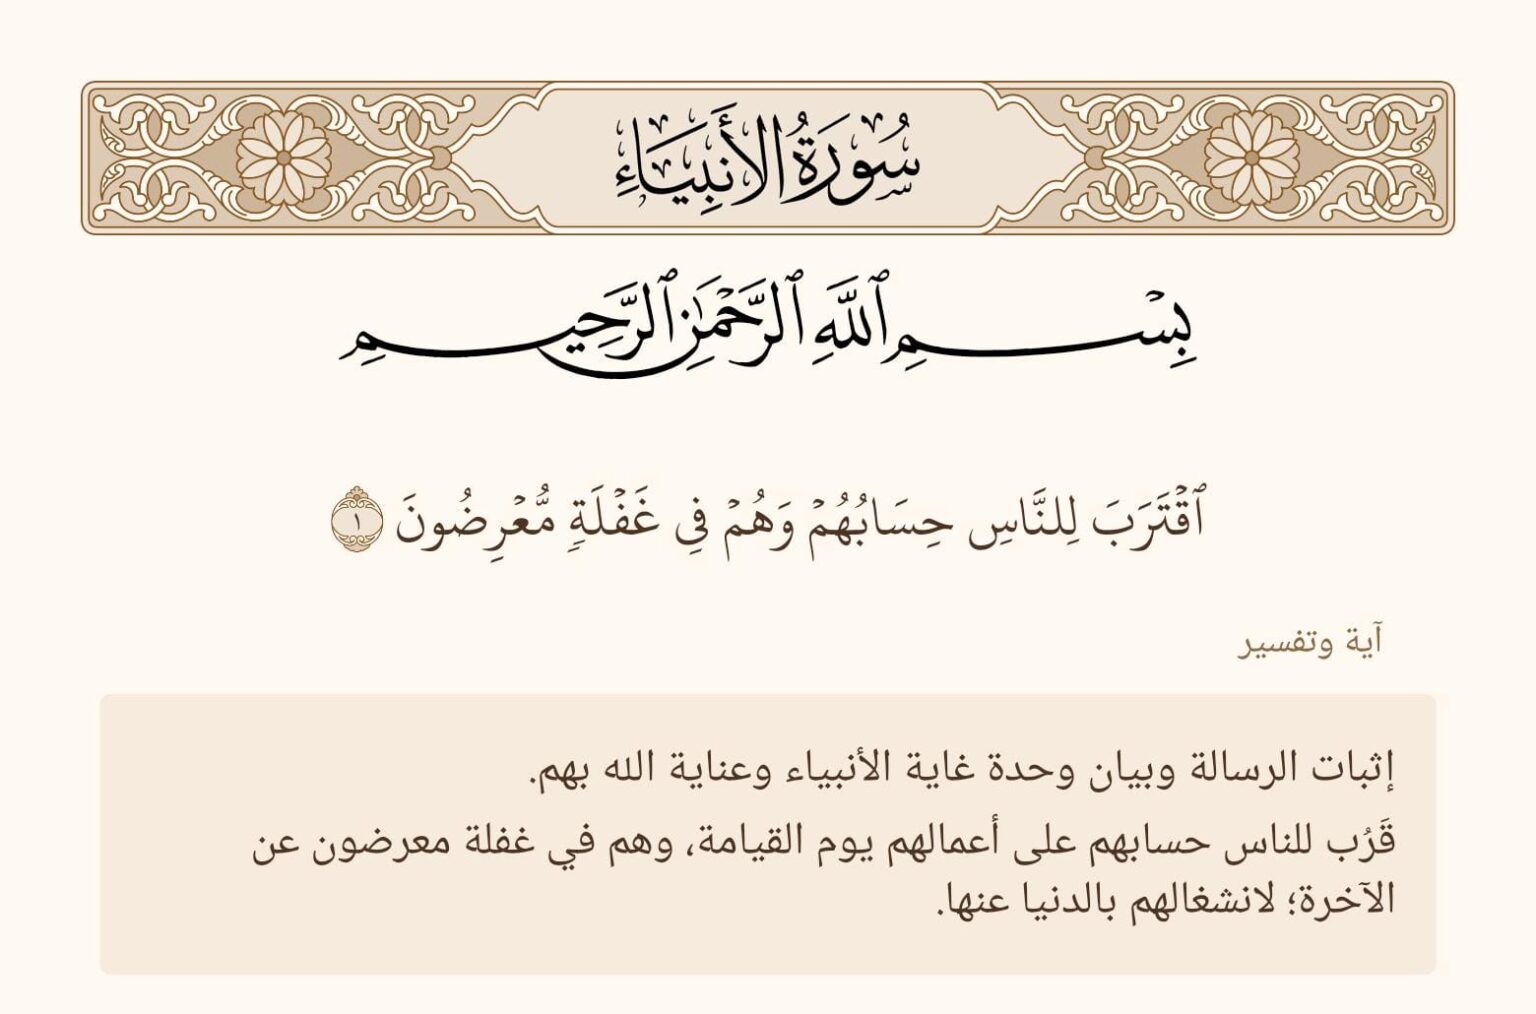 سُورَةُ الأَنبِيَاءِ
بِسْمِ ٱللَّهِ ٱلرَّحْمَٰنِ ٱلرَّحِيمِ
ٱقْتَرَبَ لِلنَّاسِ حِسَابُهُمْ وَهُمْ فِى غَفْلَةٍ مُّعْرِضُونَ ١
آية وتفسير
إثبات الرسالة وبيان وحدة غاية الأنبياء وعناية الله بهم.
قَرُب للناس حسابهم على أعمالهم يوم القيامة، وهم في غفلة معرضون عن
الآخرة؛ لانشغالهم بالدنيا عنها.